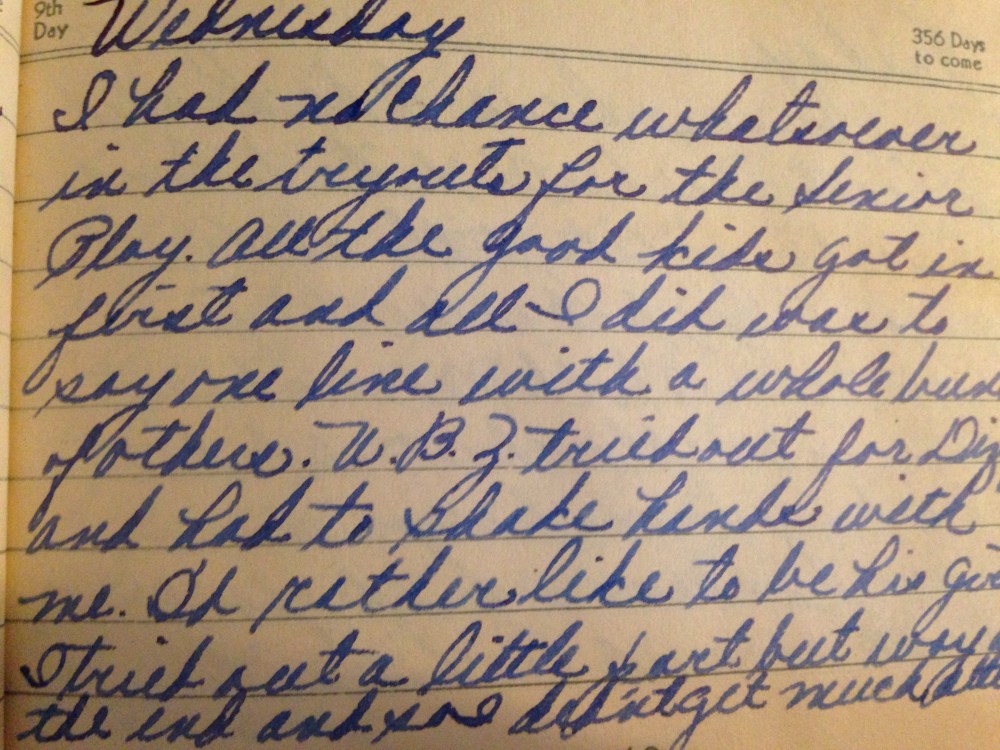 9th
Day
Wednesday
356 Days
to come
I had no chance whatsoever
in the tryouts for the Senior
Play. All the good kids got in
first and all I did was to
say one line with a whole bun
of others. W.B.Z. tried out for Diz
and had to shake hands with
me. I'd rather like to be his gir
I tried out a little part but way
the end and so I didn't get much atte